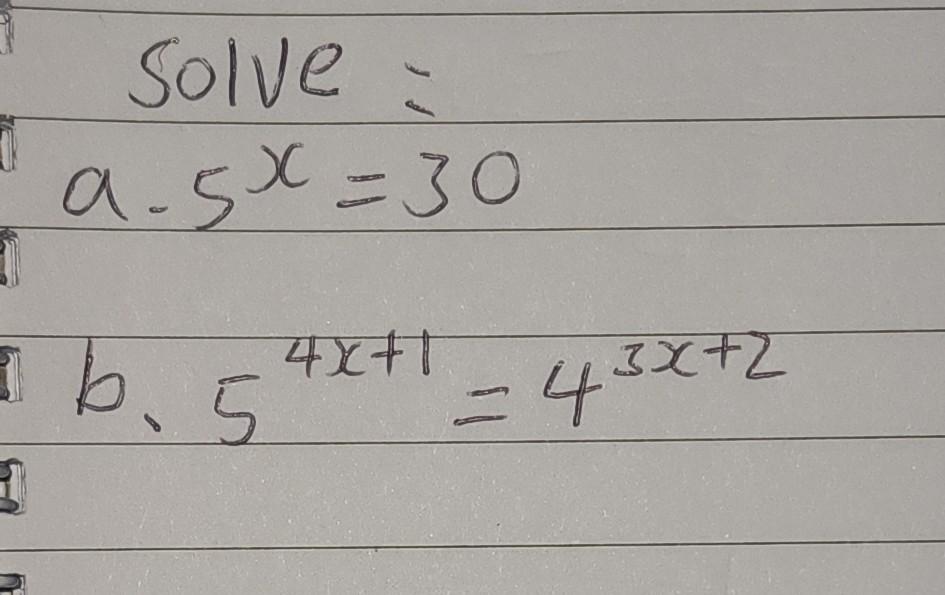 solve :
a. 5^x = 30
b. 5^{4x+1} = 4^{3x+2}